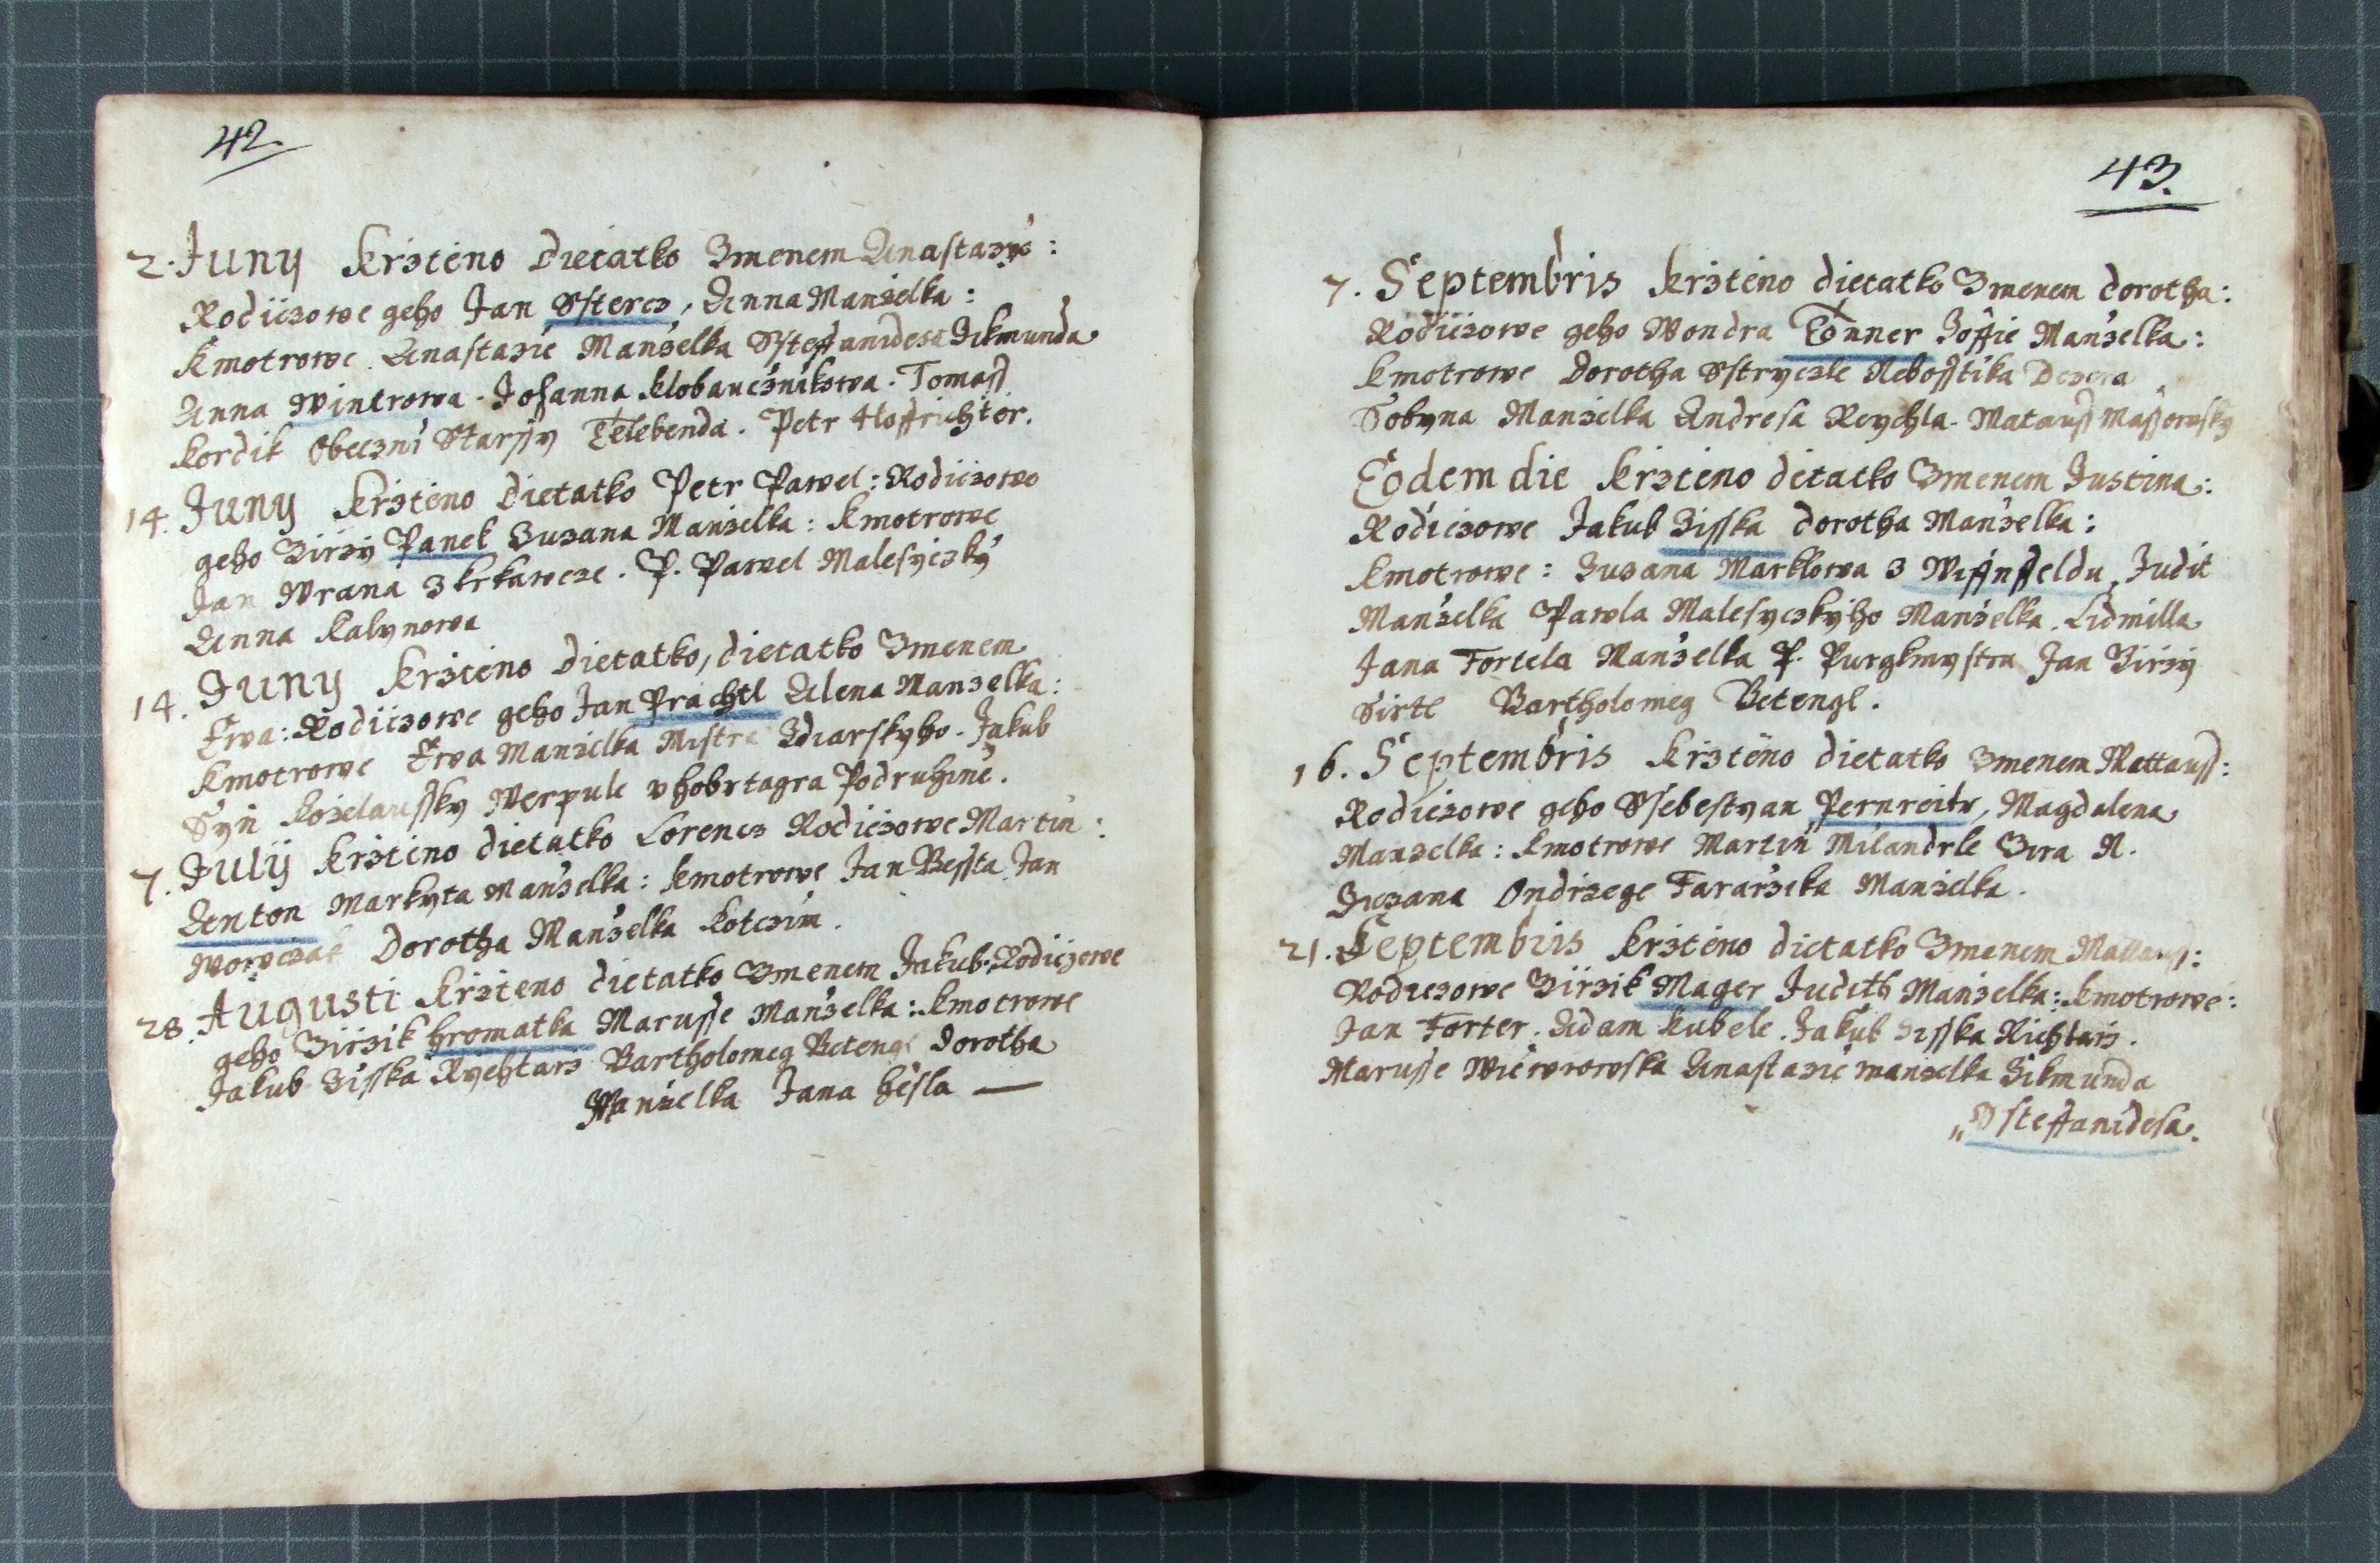 42.
2. Juny Krzteno Dietatko Zmenem Anastazye:
Rodiczowe geho Jan Sstercz, Anna Manzelka:
Kmotrowe. Anastazie Manzelka Ssteffanidesa Zikmunda
Anna Wintrowa. Johanna Klobaucznikowa. Tomass
Kordik Obeczni Starssy Telebenda. Petr Hoffrichter.
14. Juny Krzteno Dietatko Petr Pawel: Rodiczowe
geho Girzy Panek Zuzana Manzelka: Kmotrowe
Jan Wrana z krkawcze. P. Pawel Malesyczky
Anna Kalynowa
14. Juny Krzteno Dietatko, dietatko Zmenem
Ewa: Rodiczowe geho Jan Prachtl Alena Manzelka:
Kmotrowe Ewa Manzelka Mistra Zdiarskyho. Jakub
Syn Kozelaussky Werpule v hobrtagra Podruhine.
7. Julij Krzteno dietatko Lorencz Rodiczowe Martin:
Anton Markyta Manzelka: Kmotrowe Jan Bessta Jan
Dorotha Manzelka Kotczim.
28. Augusti Krzteno dietatko Zmenem Jakub. Rodiczowe
geho Girzik hromatka Marusse Manzelka: Kmotrowe
Jakub Zisska Rychtarz Bartholomeg Betengl Dorotha
Manzelka Jana hesla —
43.
7. Septembris Krzteno dietatko Zmenem dorotha:
Rodiczowe geho Wondra Tonner Zoffie Manzelka:
Kmotrowe Dorotha Sstryczle Nebosstika Dcera
Sobyna Manzelka Andresa Reychla. Matauss Massowsky
Eodem die Krzteno detatko Zmenem Justina:
Rodiczowe Jakub Zisska dorotha Manzelka:
Kmotrowe: Zuzana Marklowa z Wiffnffeldu, Judit
Manzelka Pawla Malesyczkyho Manzelka. Lidmilla
Jana Fortela Manzelka P. Purgkmystra Jan Girzy
Sirte Bartholomeg Betengl.
16. Septembris Krzteno dietatko Zmenem Mattauss:
Rodiczowe geho Ssebestyan Pernreitr, Magdalena
Manzelka: Kmotrowe Martin Milandrle Gira N.
Zuzana Ondrzege Fararzika Manzelka.
21. Septembris Krzteno dietatko Zmenem Mattauss:
Rodiczowe Girzik Mager Judith Manzelka: Kmotrowe:
Jan Forter. Adam Kubele. Jakub Zisska Richtarz.
Marusse Wiewrowska Anastazie manzelka Zikmunda
Ssteffanidesa.